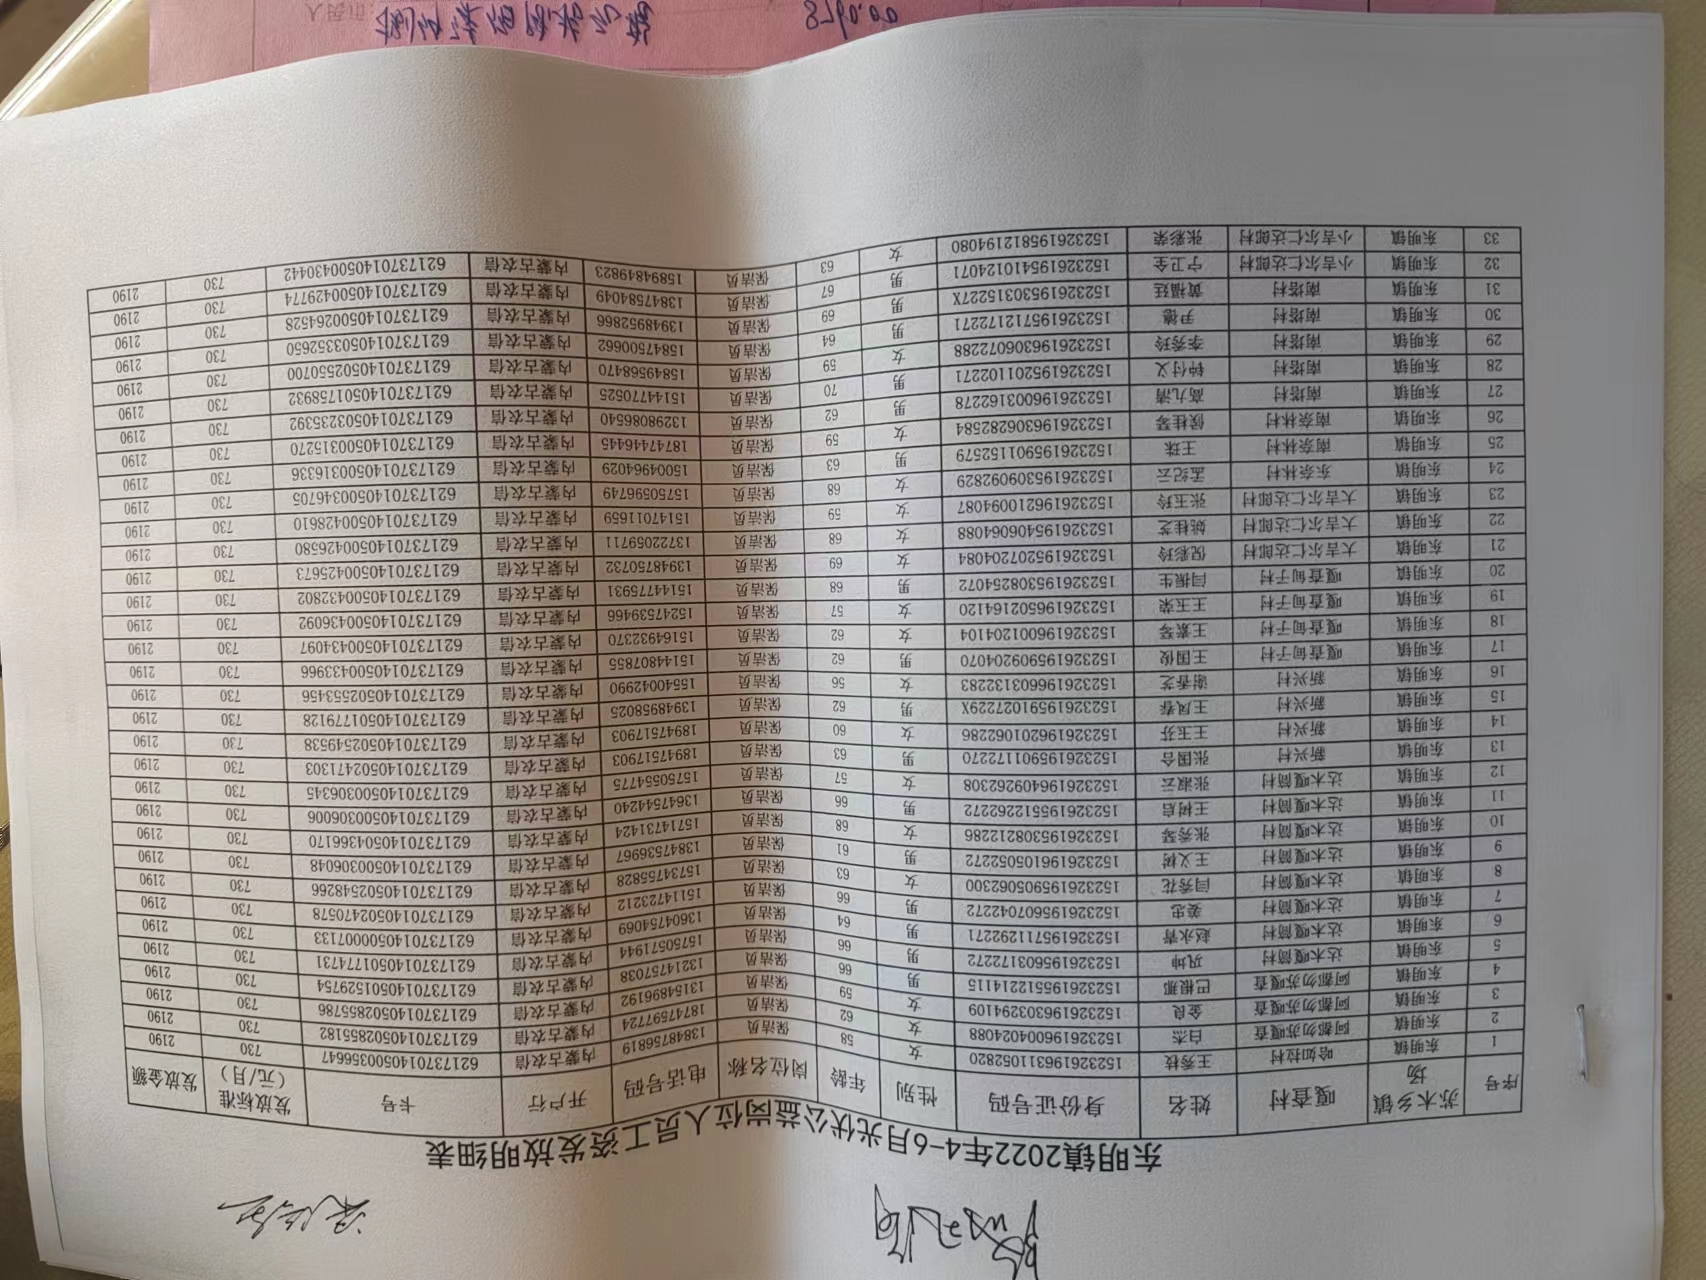 东明镇2022年4-6月光伏公益岗位人员工资发放明细表
序号 苏木乡镇场 嘎查村 姓名 身份证号码 性别 年龄 岗位名称 电话号码 开户行 卡号 发放标准（元/月） 发放金额
1 东明镇 哈如拉村 王秀枝 152326196311052820 女 58 保洁员 13848756819 内蒙古农信 6217370140500356647 730 2190
2 东明镇 阿都勿苏嘎查 白杰 152326196004024088 女 62 保洁员 18747597724 内蒙古农信 6217370140502855182 730 2190
3 东明镇 阿都勿苏嘎查 金良 152326196303294109 女 59 保洁员 13154896192 内蒙古农信 6217370140502855786 730 2190
4 东明镇 阿都勿苏嘎查 巴根那 152326195512214115 男 66 保洁员 13214757038 内蒙古农信 6217370140501529754 730 2190
5 东明镇 达木嘎筒村 巩坤 152326195603172272 男 66 保洁员 15750571944 内蒙古农信 6217370140501774731 730 2190
6 东明镇 达木嘎筒村 赵永青 152326195711292271 男 64 保洁员 13604754069 内蒙古农信 6217370140500007133 730 2190
7 东明镇 达木嘎筒村 姜忠 152326195607042272 男 66 保洁员 15114723212 内蒙古农信 6217370140502470578 730 2190
8 东明镇 达木嘎筒村 闫秀花 152326195905062300 女 63 保洁员 15734755828 内蒙古农信 6217370140502548266 730 2190
9 东明镇 达木嘎筒村 王义树 152326196105052272 男 61 保洁员 13847536967 内蒙古农信 6217370140500306048 730 2190
10 东明镇 达木嘎筒村 张秀琴 152326195308212286 女 68 保洁员 15714731424 内蒙古农信 6217370140504366170 730 2190
11 东明镇 达木嘎筒村 王树启 152326195512262272 男 66 保洁员 13647544240 内蒙古农信 6217370140500306006 730 2190
12 东明镇 达木嘎筒村 张淑云 152326196409262308 女 57 保洁员 15750554775 内蒙古农信 6217370140500306345 730 2190
13 东明镇 新兴村 张国合 152326195901172270 男 63 保洁员 18947517903 内蒙古农信 6217370140502471303 730 2190
14 东明镇 新兴村 王玉芬 152326196201062286 女 60 保洁员 18947517903 内蒙古农信 6217370140502549538 730 2190
15 东明镇 新兴村 王凤春 15232619591027229X 男 62 保洁员 13948958025 内蒙古农信 6217370140501779128 730 2190
16 东明镇 新兴村 谢香芝 152326196603132283 女 56 保洁员 15540042990 内蒙古农信 6217370140502553456 730 2190
17 东明镇 嘎查甸子村 王国俊 152326195909204070 男 62 保洁员 15144807855 内蒙古农信 6217370140500433966 730 2190
18 东明镇 嘎查甸子村 王素琴 152326196001204104 女 62 保洁员 15164932370 内蒙古农信 6217370140500434097 730 2190
19 东明镇 嘎查甸子村 王玉荣 152326196502164120 女 57 保洁员 15247539466 内蒙古农信 6217370140500436092 730 2190
20 东明镇 嘎查甸子村 闫振生 152326195308254072 男 68 保洁员 15144775931 内蒙古农信 6217370140500432802 730 2190
21 东明镇 大吉尔仁达郎村 倪彩玲 152326195207204084 女 69 保洁员 13948750732 内蒙古农信 6217370140500425673 730 2190
22 东明镇 大吉尔仁达郎村 姚桂芝 152326195406064088 女 68 保洁员 13722059711 内蒙古农信 6217370140500426580 730 2190
23 东明镇 大吉尔仁达郎村 张玉玲 152326196210094087 女 59 保洁员 15147011659 内蒙古农信 6217370140500428610 730 2190
24 东明镇 东奈林村 孟纪云 152326195309092829 女 68 保洁员 15750596749 内蒙古农信 6217370140500346705 730 2190
25 东明镇 南奈林村 王珠 152326195901152579 男 63 保洁员 15004964029 内蒙古农信 6217370140500316336 730 2190
26 东明镇 南奈林村 侯桂琴 152326196306282584 女 59 保洁员 18747446445 内蒙古农信 6217370140500315270 730 2190
27 东明镇 南塔村 高九清 152326196003162278 男 62 保洁员 13298086540 内蒙古农信 6217370140503235392 730 2190
28 东明镇 南塔村 钟付义 152326195201102271 男 70 保洁员 15144770525 内蒙古农信 6217370140501758932 730 2190
29 东明镇 南塔村 李秀玲 152326196306072288 女 59 保洁员 15849568470 内蒙古农信 6217370140502550700 730 2190
30 东明镇 南塔村 尹德 152326195712172271 男 64 保洁员 15847500662 内蒙古农信 6217370140503352650 730 2190
31 东明镇 南塔村 黄福廷 15232619530315227X 男 69 保洁员 13948952866 内蒙古农信 6217370140500264528 730 2190
32 东明镇 小吉尔仁达郎村 宁卫全 152326195410124071 男 67 保洁员 13847584049 内蒙古农信 6217370140500429774 730 2190
33 东明镇 小吉尔仁达郎村 张彩荣 152326195812194080 女 63 保洁员 15894849823 内蒙古农信 6217370140500430442 730 2190